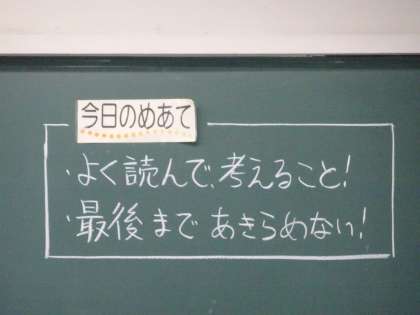 今日のめあて
・よく読んで、考えること!
・最後まであきらめない!